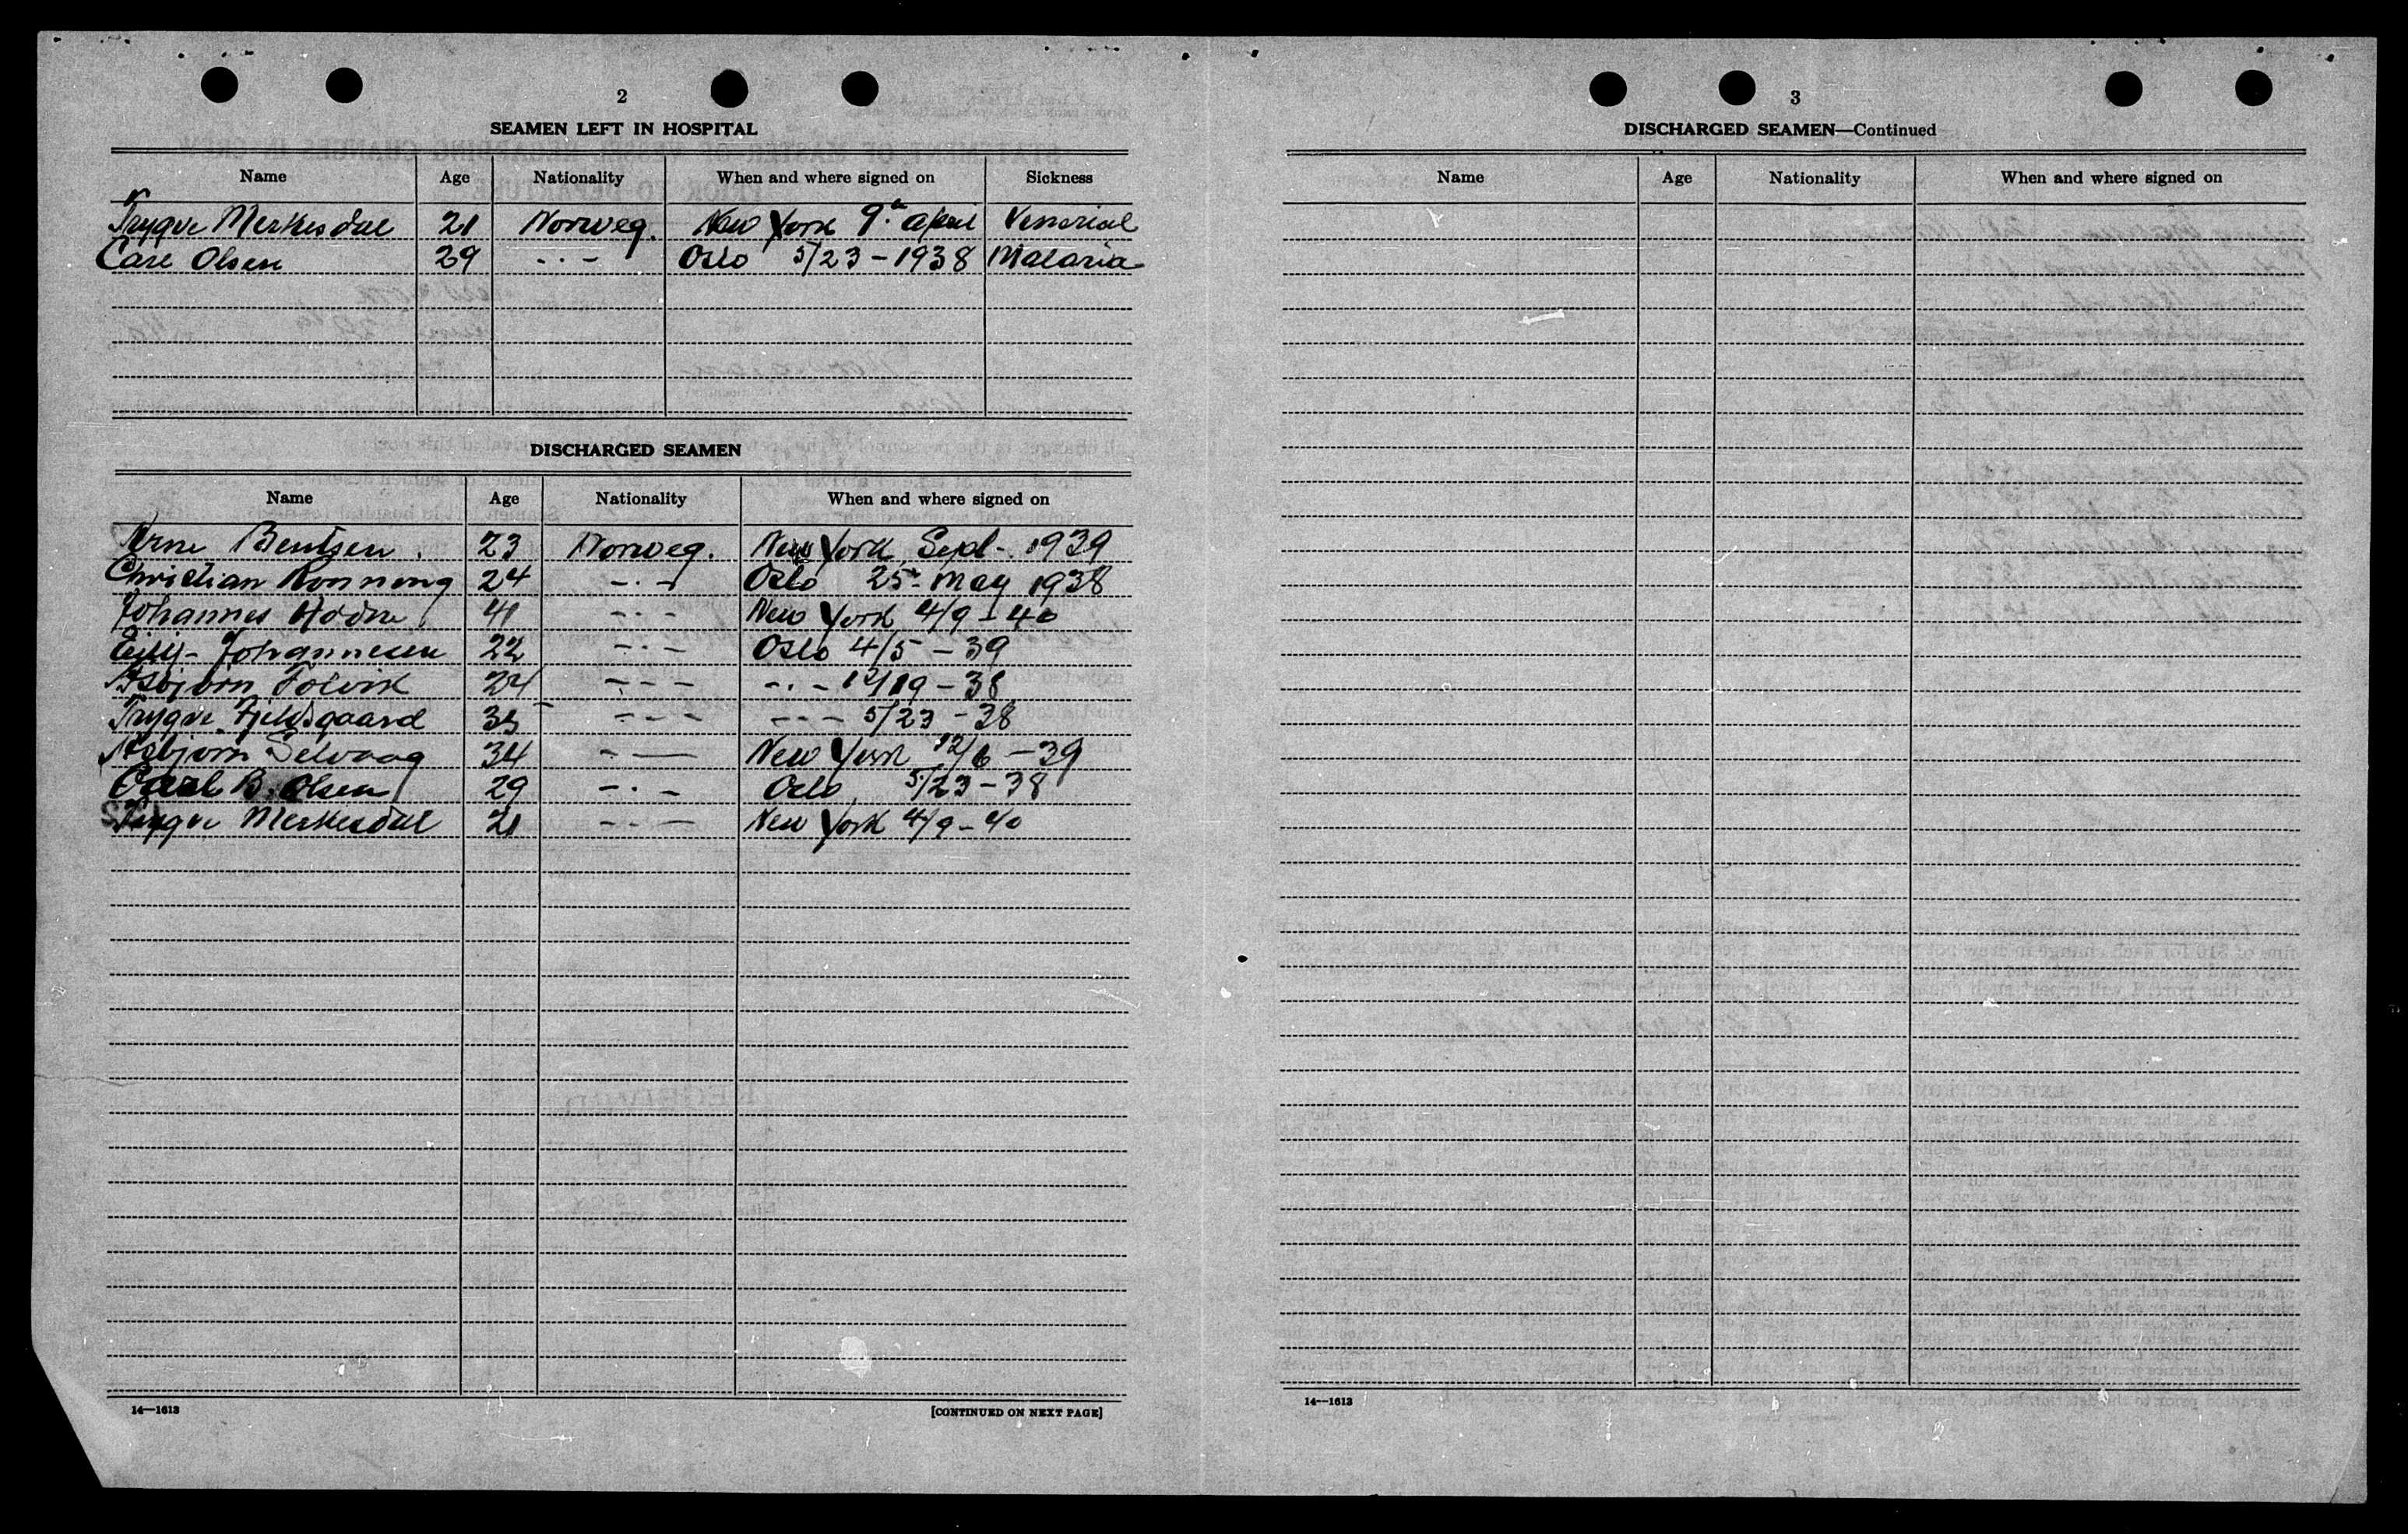 2
SEAMEN LEFT IN HOSPITAL
Name Age Nationality When and where signed on Sickness
Trygve Merkesdal 21 Norweg. New York 9.th april Venerial
Carl Olsen 29 -·- Oslo 5/23 - 1938 Malaria
DISCHARGED SEAMEN
Name Age Nationality When and where signed on
Arne Bentsen. 23 Norweg. New York, Sept-. 1939
Christian Ronneng 24 -·- Oslo 25th may 1938
Johannes 41 -·- New York 4/9 - 40
Johannesen 22 -·- Oslo 4/5 - 39
Asbjorn Folvik 24 --- -·- 12/19 - 38
Trygve Fjeldsgaard 35 --- --- 5/23 - 38
Asbjorn Selvaag 34 -·— New York 12/6 - 39
Carl B. Olsen 29 -·- Oslo 5/23 - 38
Trygve Merkesdal 21 -·- New York 4/9 - 40
14—1613 [CONTINUED ON NEXT PAGE]
3
DISCHARGED SEAMEN—Continued
Name Age Nationality When and where signed on
14—1613